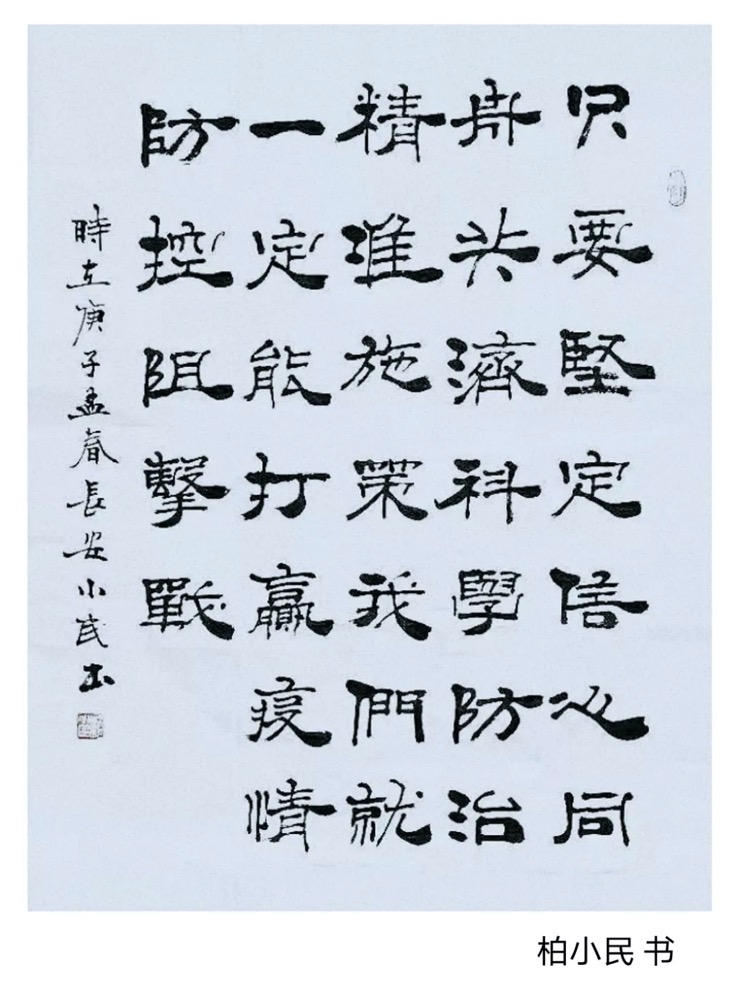 只要堅定信心同
舟共濟科學防治
精準施策我們就
一定能打贏疫情
防控阻擊戰
時在庚子孟春長安小民书
柏小民 书